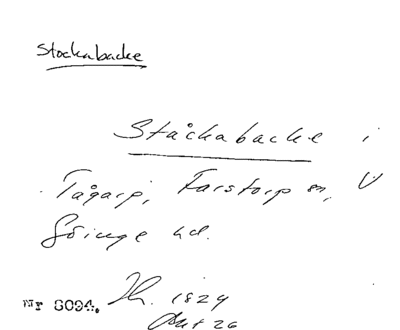 Stockabacke
Ståckabacke i
Tågarp, Farstorp sn, V
Göinge hd.
Nr 8094. Jb. 1829
Akt 26